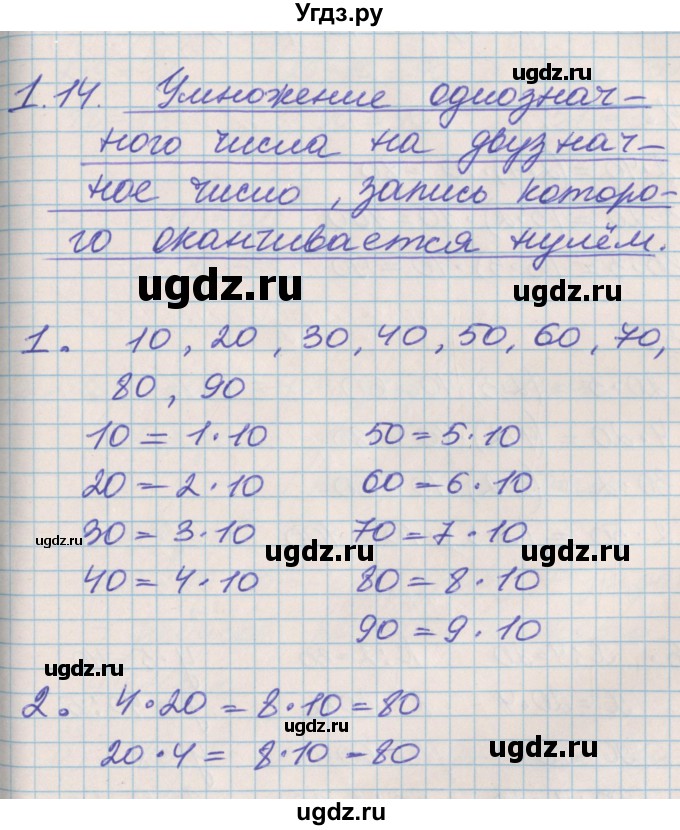 Угдз.ру
ugdz.ru
1.14. Умножение однознач-
ного числа на двузнач-
ное число, запись которо-
го оканчивается нулём.
ugdz.ru
ugdz.ru
1. 10, 20, 30, 40, 50, 60, 70,
80, 90
10 = 1·10 50 = 5·10
20 = 2·10 60 = 6·10
30 = 3·10 70 = 7·10
ugdz.ru ugdz.ru
40 = 4·10 80 = 8·10
ugdz.ru
90 = 9·10
ugdz.ru
2. 4·20 = 8·10 = 80
ugdz.ru
20·4 = 8·10 = 80
ugdz.ru
ugdz.ru